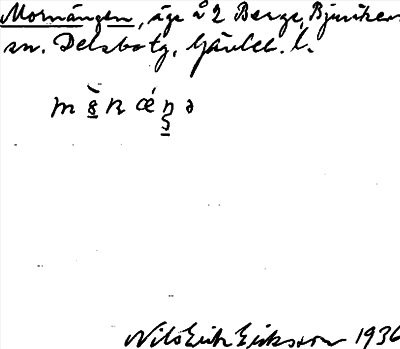 Mornängen, äga å 2 Berge, Bjuråkers
sn. Delsbotg. Gävleb. l.
Nils Erik Eriksson 1936